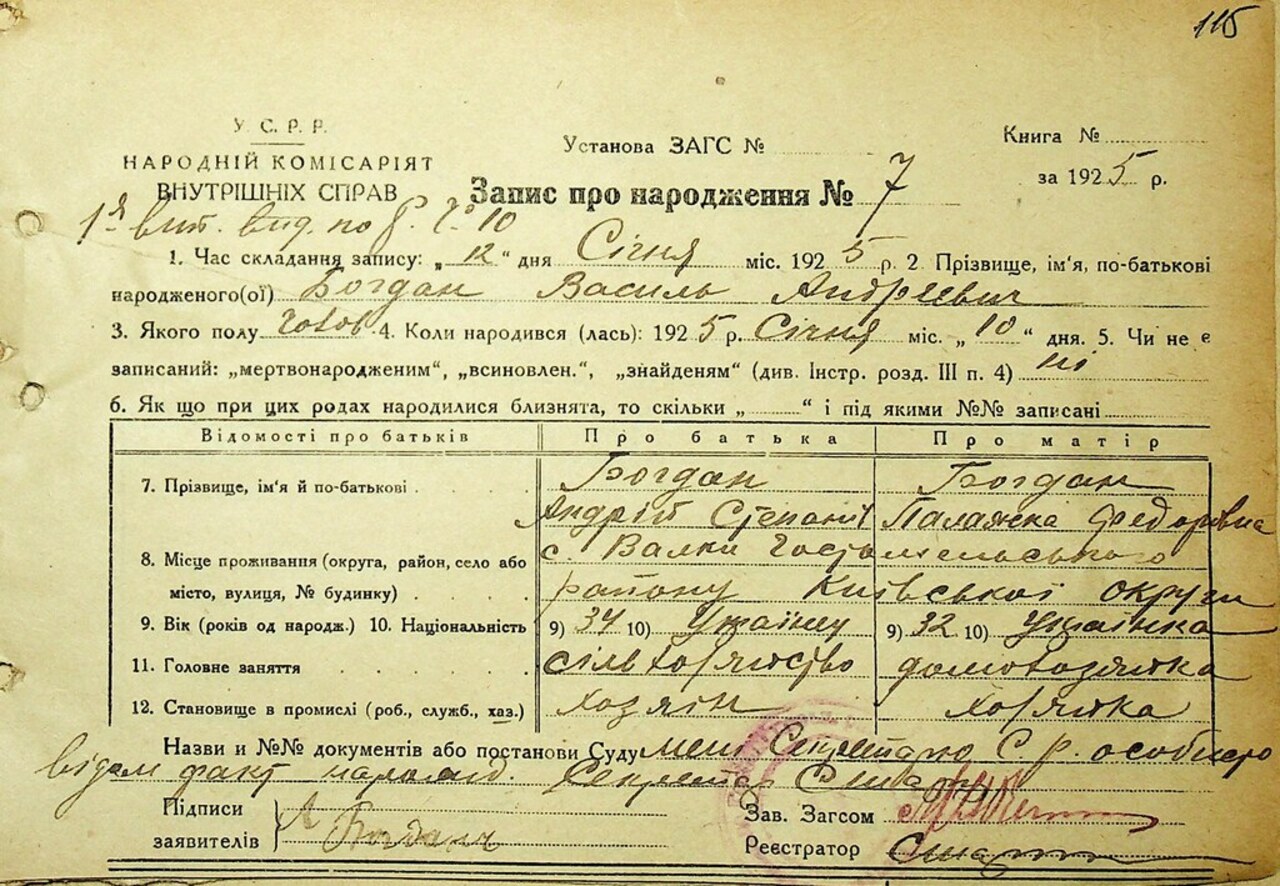 115
У. С. Р. Р.
НАРОДНІЙ КОМІСАРІЯТ
ВНУТРІШНІХ СПРАВ
Установа ЗАГС №
Книга №
за 1925 р.
Запис про народження № 7
1й вит. вид. по
1. Час складання запису: „12“ дня Січня міс. 1925 р. 2 Прізвище, ім'я, по-батькові
народженого(ої) Богдан Василь Андрієвич
3. Якого полу чолов. 4. Коли народився (лась): 1925 р. Січня міс. „10“ дня. 5. Чи не є
записаний: „мертвонародженим“, „всиновлен.“, „знайденям“ (див. Інстр. розд. III п. 4) ні
6. Як що при цих родах народилися близнята, то скільки „ “ і під якими №№ записані
Відомості про батьків Про батька Про матір
7. Прізвище, ім'я й по-батькові Богдан Богдан
Андрій Степанів Палажка Федорівна
8. Місце проживання (округа, район, село або с. Валки Гостомельського
місто, вулиця, № будинку) району Київської округи
9. Вік (років од народж.) 10. Національність 9) 34 10) Українець 9) 32 10) Українка
11. Головне заняття домохозяйка
12. Становище в промислі (роб., служб., хаз.) хозяін хозяйка
Назви и №№ документів або постанови Суду мені Секретарю С. р. особисто
відом факт народж. Секретар
Підписи
заявителів
А Богдан
Зав. Загсом
Реєстратор